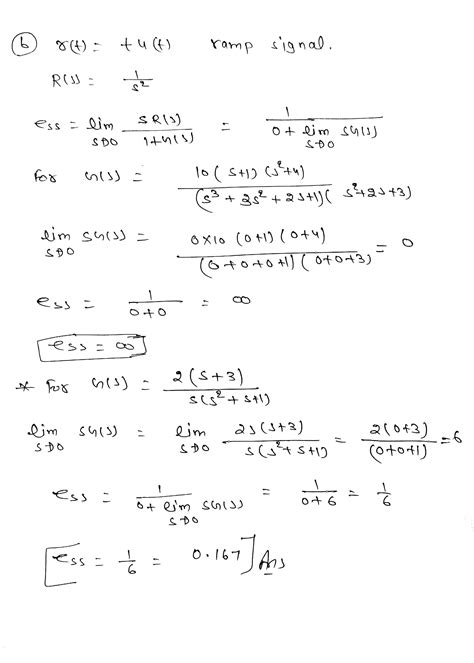 (b) r(t) = t u(t) ramp signal.
R(s) = 1/s²
ess = lim s→0 sR(s)/(1+G(s)) = 1/(0 + lim s→0 sG(s))
for G(s) = 10(s+1)(s²+4)/((s³+3s²+2s+1)(s²+2s+3))
lim s→0 sG(s) = 0×10(0+1)(0+4)/((0+0+0+1)(0+0+3)) = 0
ess = 1/(0+0) = ∞
ess = ∞
* for G(s) = 2(s+3)/(s(s²+s+1))
lim s→0 sG(s) = lim s→0 2s(s+3)/(s(s²+s+1)) = 2(0+3)/(0+0+1) = 6
ess = 1/(0+lim s→0 sG(s)) = 1/(0+6) = 1/6
[ess = 1/6 = 0.167] Ans